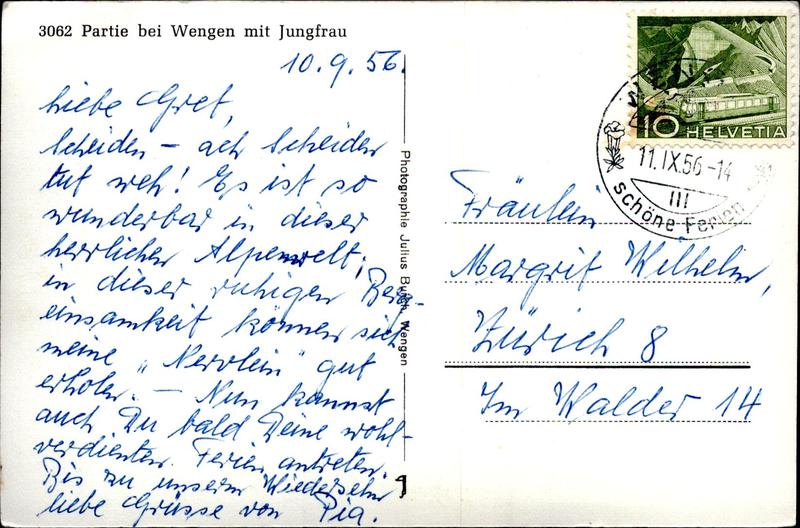 3062 Partie bei Wengen mit Jungfrau
10.9.56.
Liebe Gret,
Scheiden – ach Scheiden
tut weh! Es ist so
wunderbar in dieser
herrlichen Alpenwelt;
in dieser ruhigen Berg-
einsamkeit können sich
meine „Nervlein" gut
erholen. – Nun kannst
auch Du bald Deine wohl-
verdienten Ferien antreten.
Bis zu unserm Wiedersehn
liebe Grüsse von Pia.
Photographie Julius Wengen
10 HELVETIA
11.IX.56-14
III
schöne Ferien
Fräulein
Margrit Wilhelm,
Zürich 8
Im Walder 14